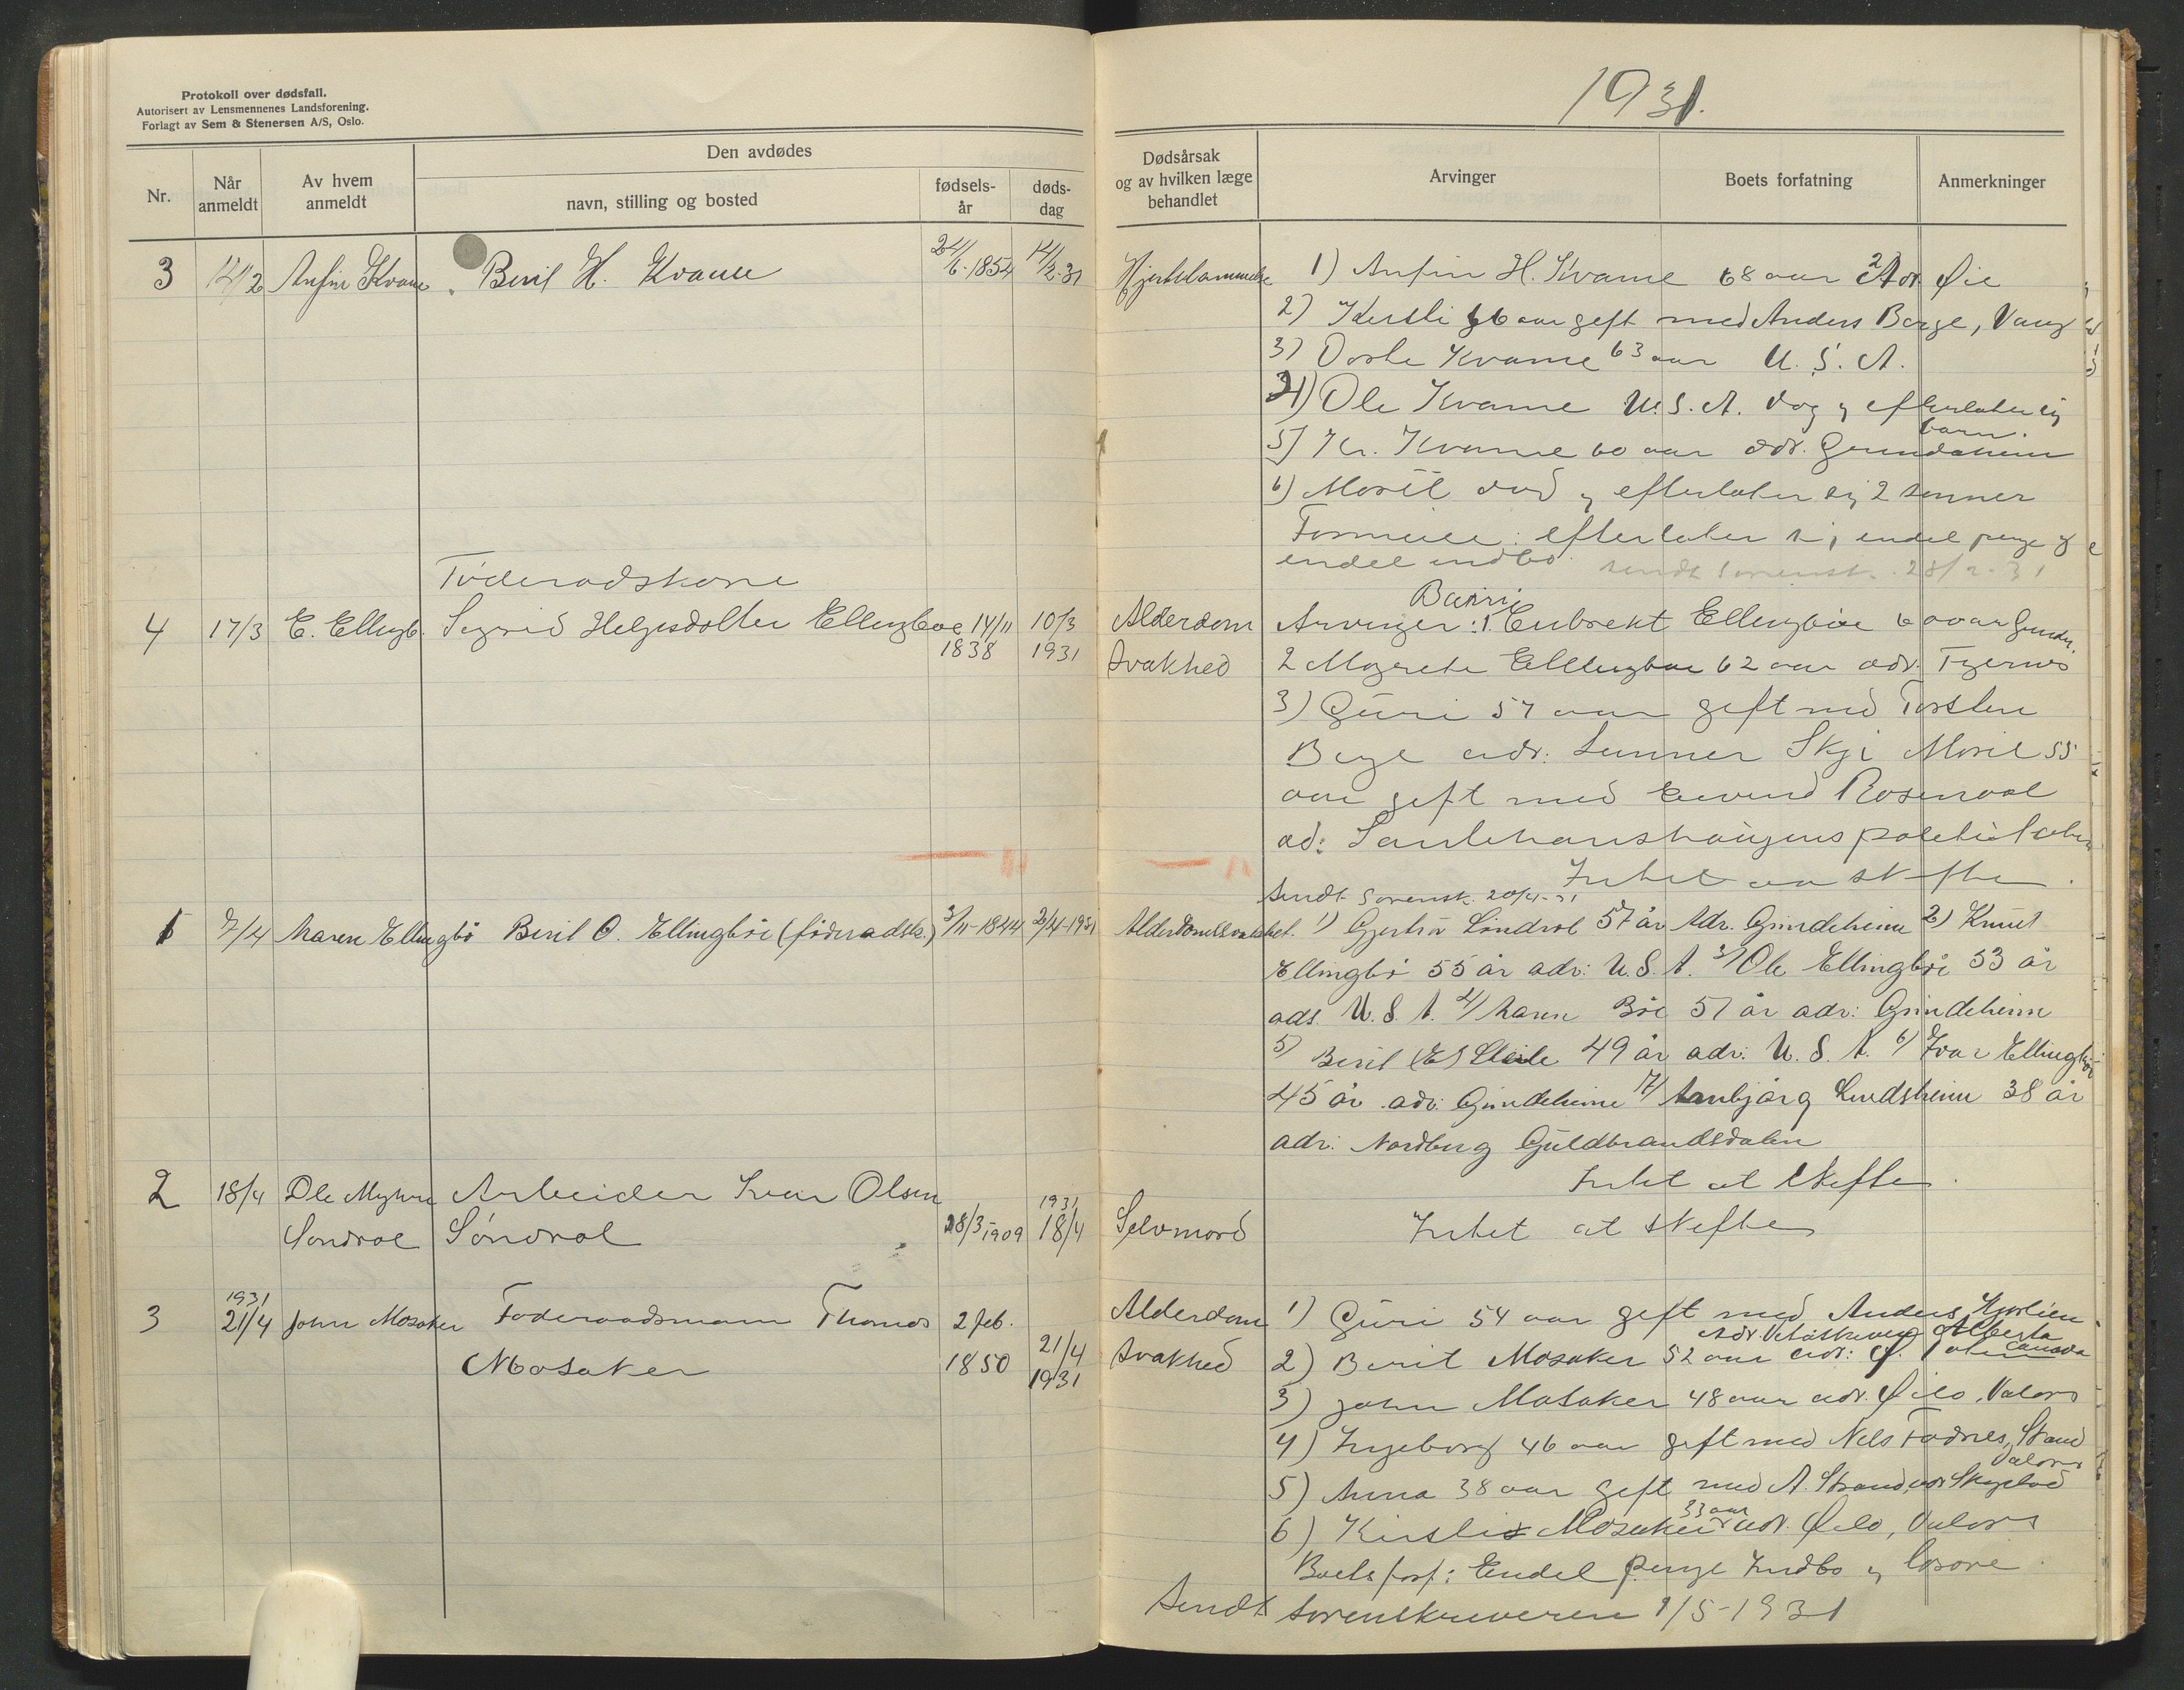 Protokoll over dødsfall.
Autorisert av Lensmennenes Landsforening.
Forlagt av Sem & Stenersen A/S, Oslo.
1931.
Nr.
Når anmeldt
Av hvem anmeldt
Den avdødes
navn, stilling og bosted
fødsels-år
døds-dag
Dødsårsak og av hvilken læge behandlet
Arvinger
Boets forfatning
Anmerkninger
3 14/2 Anfin Kvame Beril H. Kvame 24/6-1854 14/2-31
1) Anfin H. Kvame 68 aar Adr. Øie
2) Kersti 66 aar geft med Anders Berge, Vang
3) Dorte Kvame 63 aar U.S.A.
4) Ole Kvame U.S.A. død og efterlater sig
barn.
5) Kr. Kvame 60 aar adr. Grindaheim
6) Marit død og efterlater sig 2 sønner
Formue: efterlater sig endel penge og
endel indbo. sendt Sorensk. 28/2-31
Føderadskone
4 17/3 E. Ellingb. Sigrid Helgesdotter Ellingboe 14/11 1838 10/3 1931
Alderdom
svakhed
Barn:
Arvinger: 1. Enbrekt Ellingbøe 60 aar
2 Magrete Ellingboe 62 aar adr.
3) Guri 57 aar geft med Torsten
Berge adr: Lunner Skji Marit 55
aar geft med Eivind Rosenval
ad: Sanktehanshaugens
Intet at skifte.
Sendt Sorensk. 20/4-31
1 7/4 Maren Ellingbö Beril O. Ellingböe (föderadsk.) 3/11-1844 2/4-1931
Alderdomssvakhet. 1) Gjertrö Söndrol 57 år Adr. Grindeheim 2) Knut
Ellingbö 55 år adr: U.S.A. 3) Ole Ellingböe 53 år
adr. U.S.A. 4) Maren Böe 51 år adr: Grindeheim
5) Beril (E) 49 år adr: U.S.A. 6) Ivar Ellingböe
45 år adr: Grindeheim 7) Anbjørg Lindsheim 38 år
adr: Nordberg Guldbrandsdalen
Intet at skifte.
2 18/4 Ole Myhre Arbeider Ivar Olsen 1931
Søndrol Søndrol 28/3-1909 18/4 Selvmord Intet at skifte
3 1931 21/4 John Mosaker Føderaadsmann Thomas 2 feb.
Mosaker 1850 21/4 1931
Alderdom
svakhed
1) Guri 54 aar geft med Anders
Alberta
Canada
2) Berit Mosaker 52 aar adr:
3) John Mosaker 48 aar adr. Øilo, Valdres
4) Ingeborg 46 aar geft med Nels Fodnes, Strand
Valdres
5) Anna 38 aar geft med A. Strand, adr
6) Kirsti Mosaker 33 aar adr. Øilo, Valdres
Boets forf: Endel penge Indbo og løsøre.
Sendt Sorenskriveren 1/5-1931